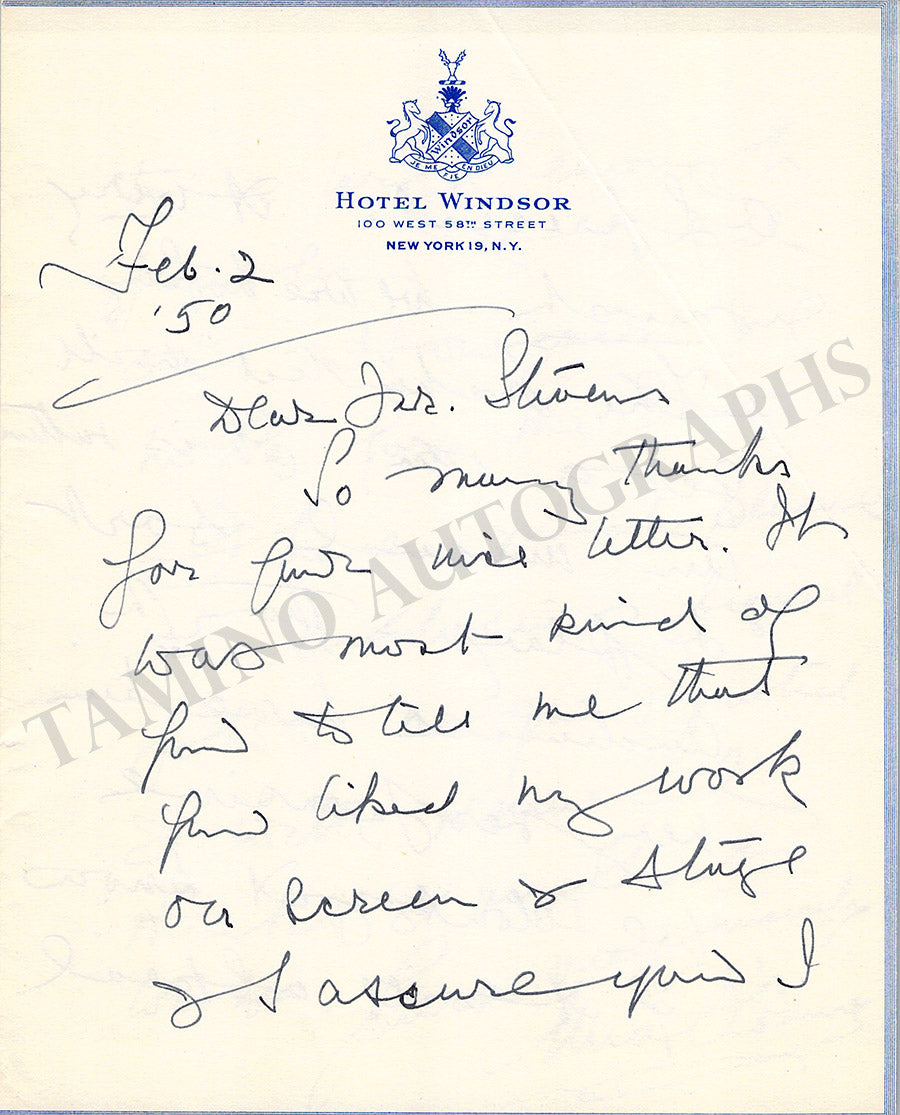 Windsor
JE ME FIE EN DIEU
HOTEL WINDSOR
100 WEST 58TH STREET
NEW YORK 19, N.Y.
Feb. 2
'50
Dear Mr. Stevens
So many thanks
for your nice letter. It
was most kind of
you to tell me that
you liked my work
on screen & stage
& I assure you I
TAMINO AUTOGRAPHS